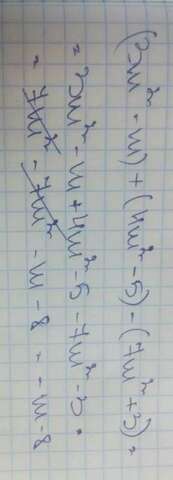 (3m² - m) + (4m² - 5) - (7m² + 3) =
= 3m² - m + 4m² - 5 - 7m² - 3 =
= 7m² - 7m² - m - 8 = - m - 8